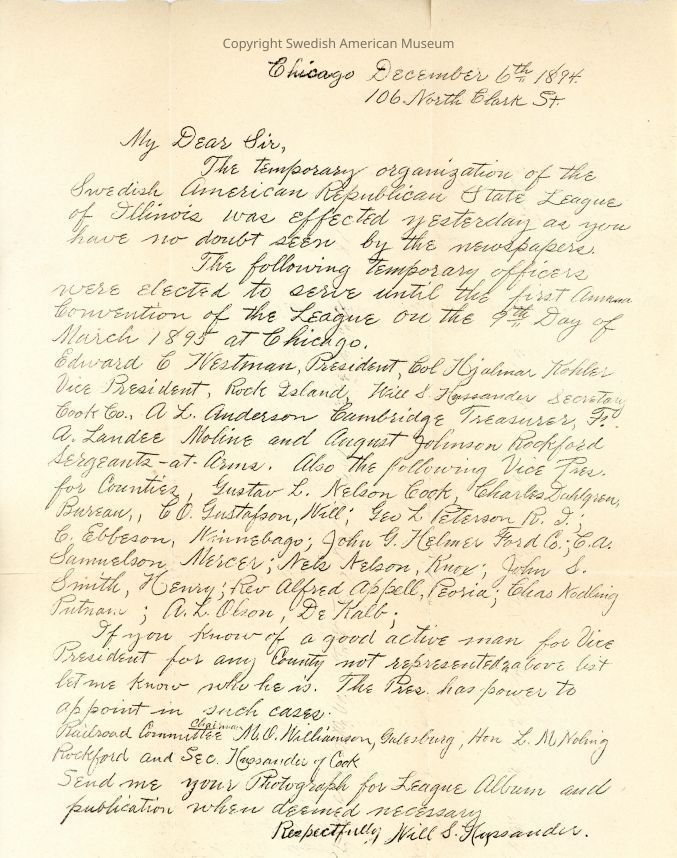 Copyright Swedish American Museum
Chicago December 6th 1894.
106 North Clark St.
My Dear Sir,
The temporary organization of the
Swedish American Republican State League
of Illinois was effected yesterday as you
have no doubt seen by the newspapers.
The following temporary officers
were elected to serve until the first Annual
Convention of the League on the 9th Day of
March 1895 at Chicago.
Edward C Westman, President, Col Hjalmar Kohler
Vice President, Rock Island, Will S. Hussander Secretary
Cook Co., A L. Anderson Cambridge Treasurer, Fr.
A. Landee Moline and August Johnson Rockford
Sergeants-at-Arms. Also the following Vice Pres.
for Counties, Gustav L. Nelson Cook, Charles Dahlgren,
Bureau,, C O. Gustafson, Will; Geo L Peterson R. I.;
C. Ebbeson, Winnebago; John G. Helmer Ford Co.; C.A.
Samuelson Mercer; Nels Nelson, Knox; John S.
Smith, Henry; Rev Alfred Appell, Peoria; Chas Nodling
Putnam; A. L. Olson, De Kalb;
If you know of a good active man for Vice
President for any County not represented in above list
let me know who he is. The Pres. has power to
appoint in such cases.
Railroad Committee Chairman M. O. Williamson, Galesburg, Hon L. M Noling
Rockford and Sec. Hussander of Cook
Send me your Photograph for League Album and
publication when deemed necessary
Respectfully, Will S. Hussander.